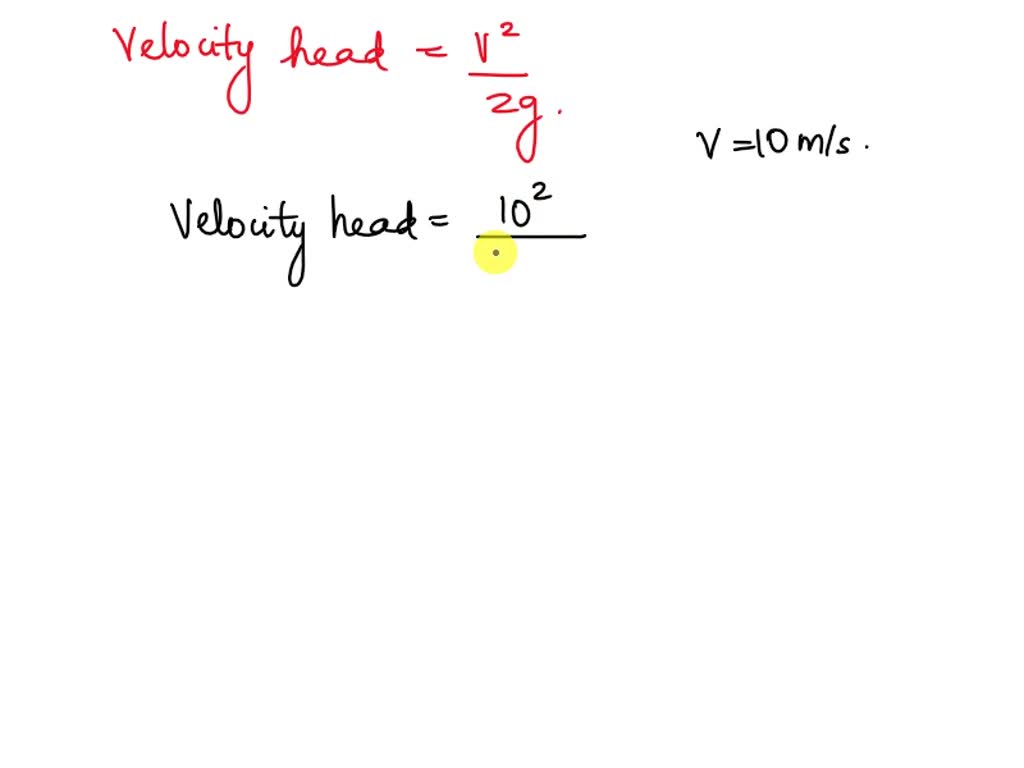 Velocity head = V²/2g.
V = 10 m/s.
Velocity head = 10²/